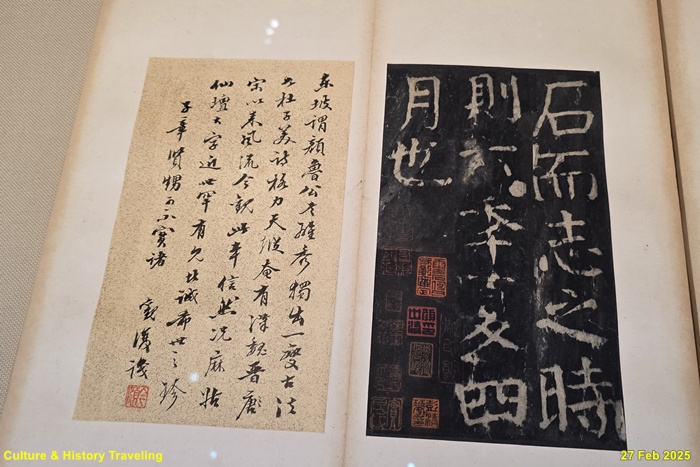 石而志之時
則六年夏四
月也
東坡謂顏魯公書雄秀獨出一變古法
如杜子美詩格力天縱奄有漢魏晉唐
宋以來風流今觀此本信然況麻姑
仙壇大字近世罕有此誠希世之珍
子章賢甥可不寶諸
復識
Culture & History Traveling
27 Feb 2025